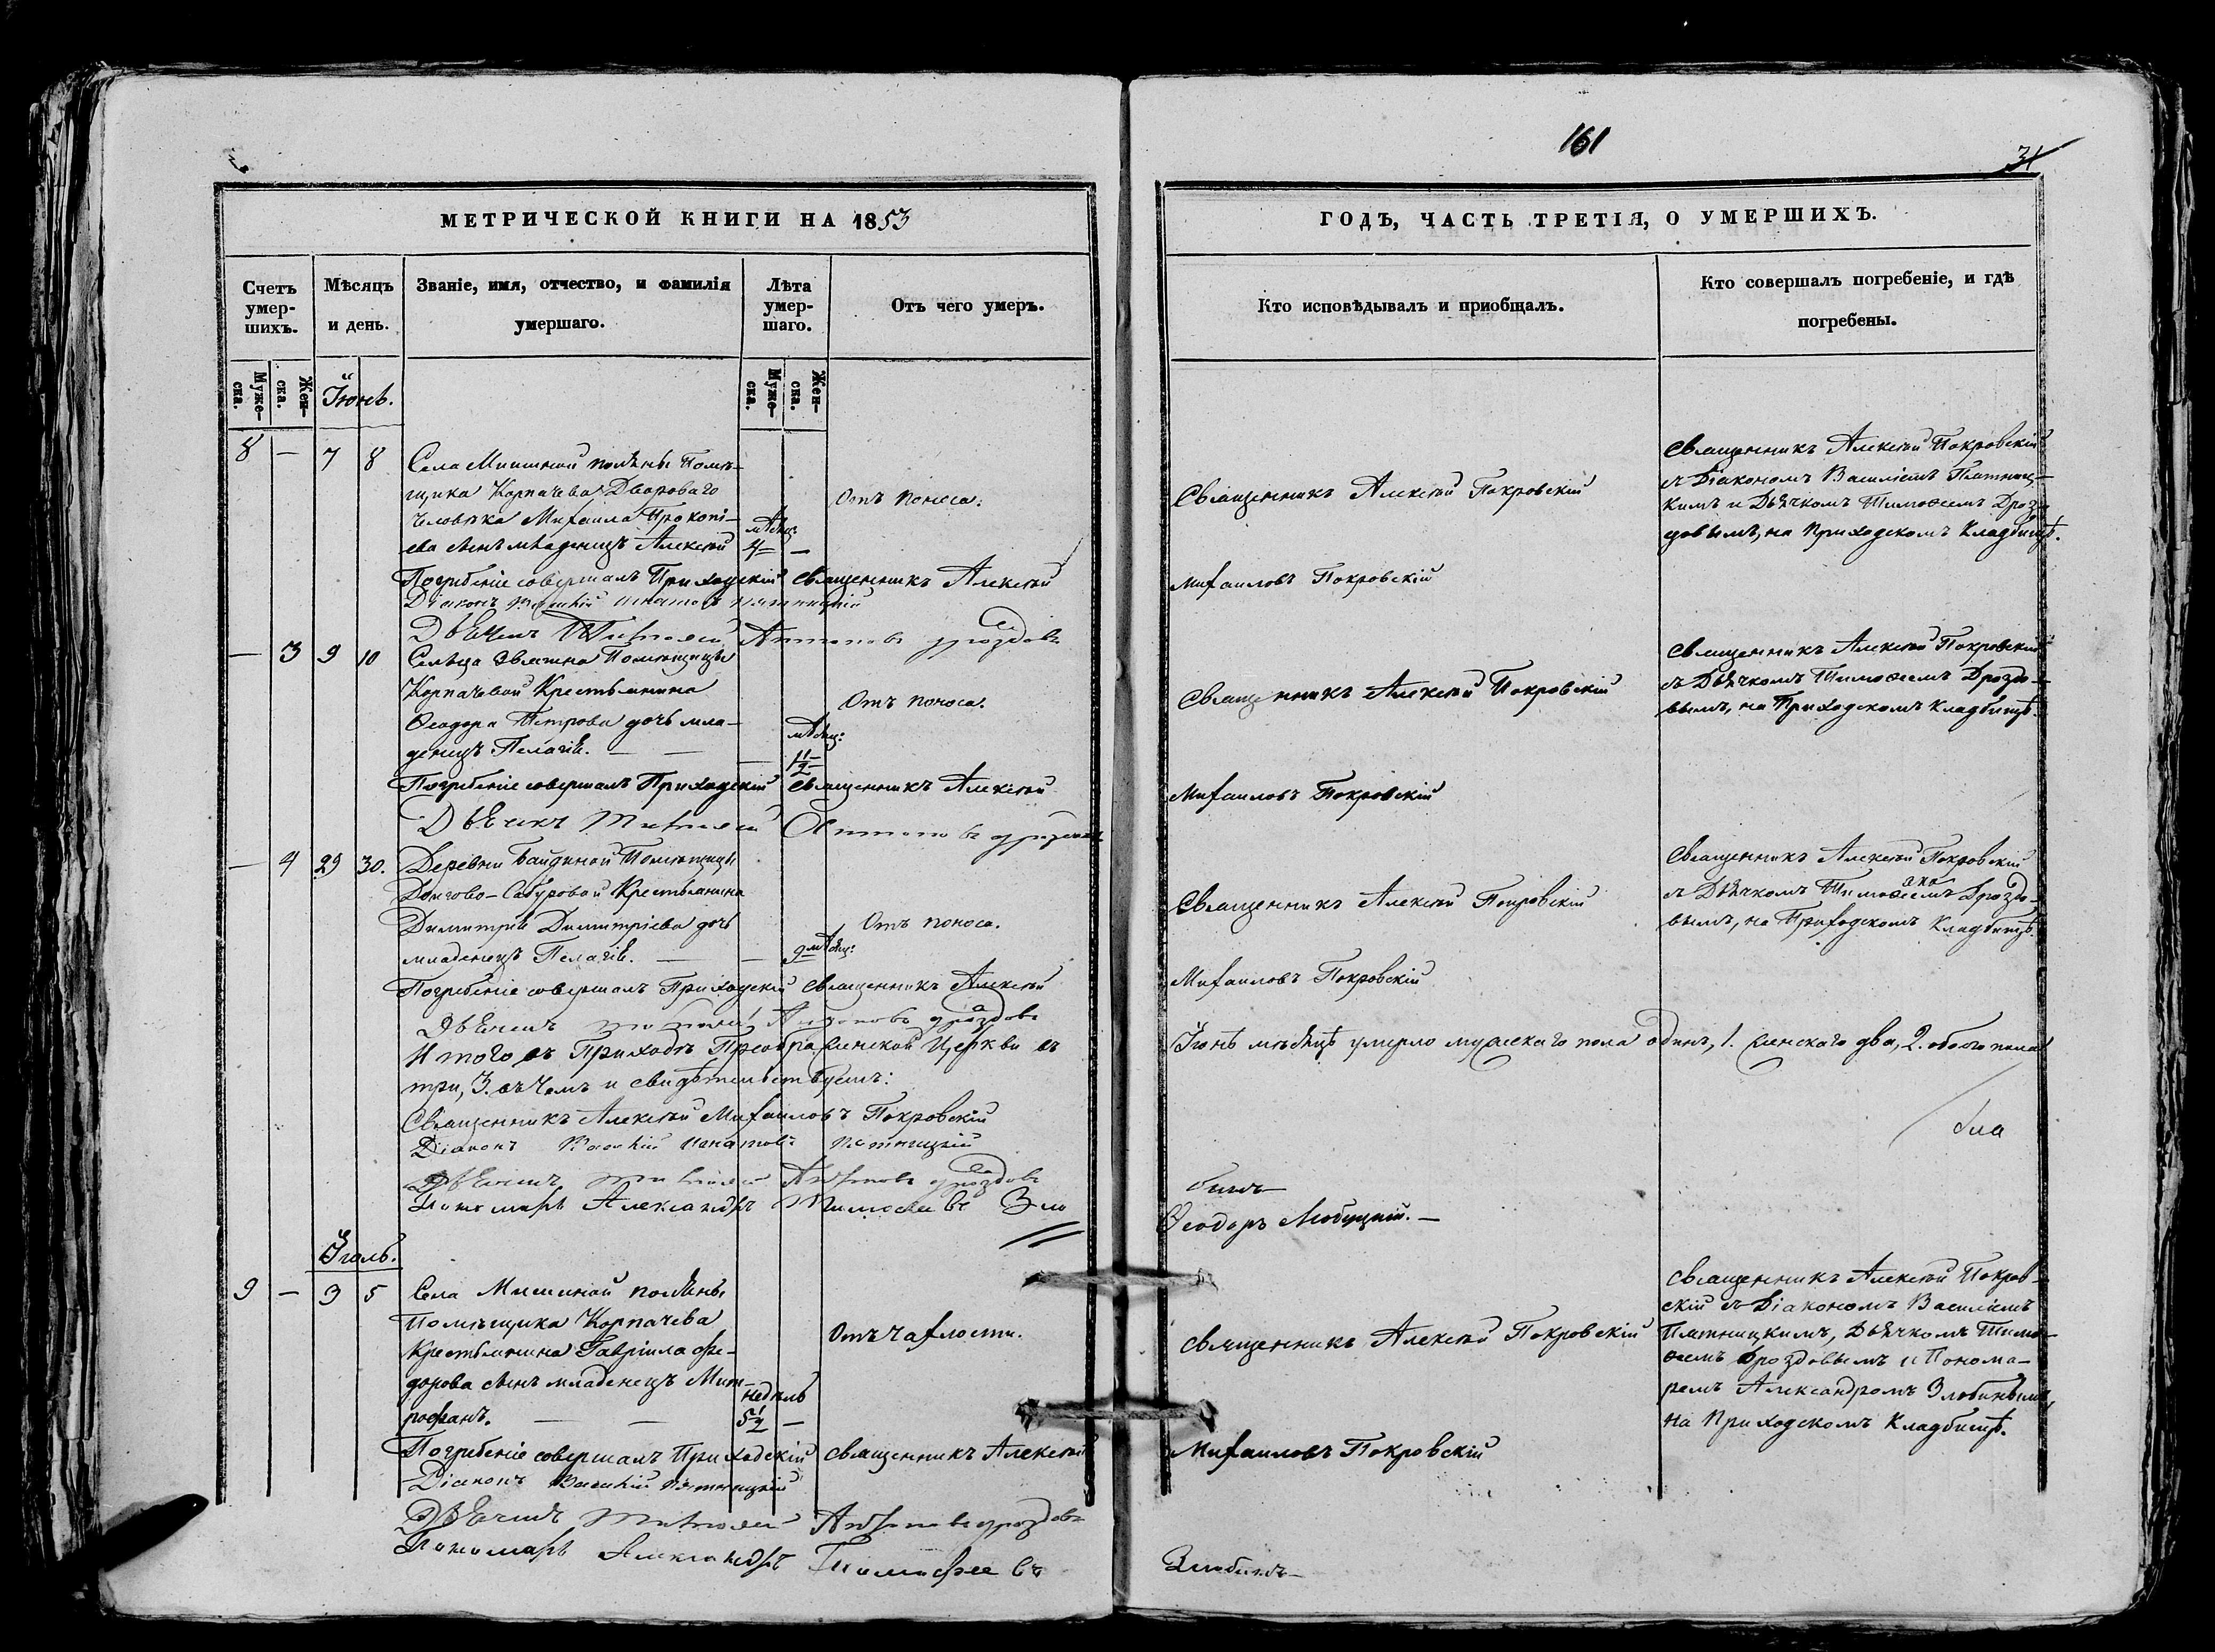 161
31
МЕТРИЧЕСКОЙ КНИГИ НА 1853
ГОДЪ, ЧАСТЬ ТРЕТІЯ, О УМЕРШИХЪ.
Счетъ умер-
шихъ.
Мѣсяцъ
и день.
Званіе, имя, отчество, и фамилія
умершаго.
Лѣта
умер-
шаго.
Отъ чего умеръ.
Кто исповѣдывалъ и приобщалъ.
Кто совершалъ погребеніе, и гдѣ
погребены.
Муже-
ска.
Жен-
ска.
Муже-
ска.
Жен-
ска.
Іюнь.
8 — 7 8
Села Мишиной поляны Помѣ-
щика Корпачева Дворового
человѣка Михаила Прокопі-
ева сынъ младенецъ Алексѣй
мѣсяц:
4 —
Отъ поноса.
Священникъ Алексѣй Покровскій
Священникъ Алексѣй Покровскій
съ Діакономъ Василіемъ Пятниц-
кимъ и Дьячкомъ Тимоѳеемъ Дроз-
довымъ, на Приходскомъ Кладбищѣ.
Погребеніе совершалъ Приходскій Священникъ Алексѣй
Михаиловъ Покровскій
Діаконъ Василій Игнатовъ Пятницкій
Дьячекъ Тимоѳей Антоновъ Дроздовъ
— 3 9 10
Сельца Помѣщицы
Корпачевой Крестьянина
Ѳеодора Петрова дочь мла-
денецъ Пелагія. — —
мѣсяц:
1 1/2
Отъ поноса.
Священникъ Алексѣй Покровскій
Священникъ Алексѣй Покровскій
съ Дьячкомъ Тимоѳеемъ Дроздо-
вымъ, на Приходскомъ Кладбищѣ.
Погребеніе совершалъ Приходскій Священникъ Алексѣй
Михаиловъ Покровскій
Дьячекъ Тимоѳей Антоновъ Дроздовъ
— 4 29 30.
Деревни Байдиной Помѣщицы
Долгово-Сабуровой Крестьянина
Димитрія Димитріева дочь
младенецъ Пелагія. — —
9 мѣсяц:
Отъ поноса.
Священникъ Алексѣй Покровскій
Священникъ Алексѣй Покровскій
съ Дьячкомъ Тимоѳеемъ Дроздо-
вымъ, на Приходскомъ Кладбищѣ.
Погребеніе совершалъ Приходскій Священникъ Алексѣй
Михаиловъ Покровскій
Дьячекъ Тимоѳей Антоновъ Дроздовъ
Итого въ Приходѣ Преображенской Церкви въ
Іюнѣ мѣсяцѣ умерло мужескаго пола одинъ, 1. женскаго два, 2. обоего пола
три, 3. въ чемъ и свидѣтельствуемъ:
Священникъ Алексѣй Михаиловъ Покровскій
Діаконъ Василій Игнатовъ Пятницкій
Дьячекъ Тимоѳей Антоновъ Дроздовъ
Пономарь Александръ Тимоѳеевъ Зло
бинъ
Ѳеодоръ Любуцкій. —
Іюль.
9 — 3 5
Села Мишиной поляны
Помѣщика Корпачева
Крестьянина Гавріила Ѳе-
дорова сынъ младенецъ Мит-
рофанъ. — —
недѣль
5 1/2 —
Отъ чахлости.
Священникъ Алексѣй Покровскій
Священникъ Алексѣй Покров-
скій съ Діакономъ Василіемъ
Пятницкимъ, Дьячкомъ Тимо-
ѳеемъ Дроздовымъ и Понома-
ремъ Александромъ Злобинымъ,
на Приходскомъ Кладбищѣ.
Погребеніе совершалъ Приходскій Священникъ Алексѣй
Михаиловъ Покровскій
Діаконъ Василій Пятницкій
Дьячекъ Тимоѳей Антоновъ Дроздовъ
Пономарь Александръ Тимофеевъ
Злобинъ